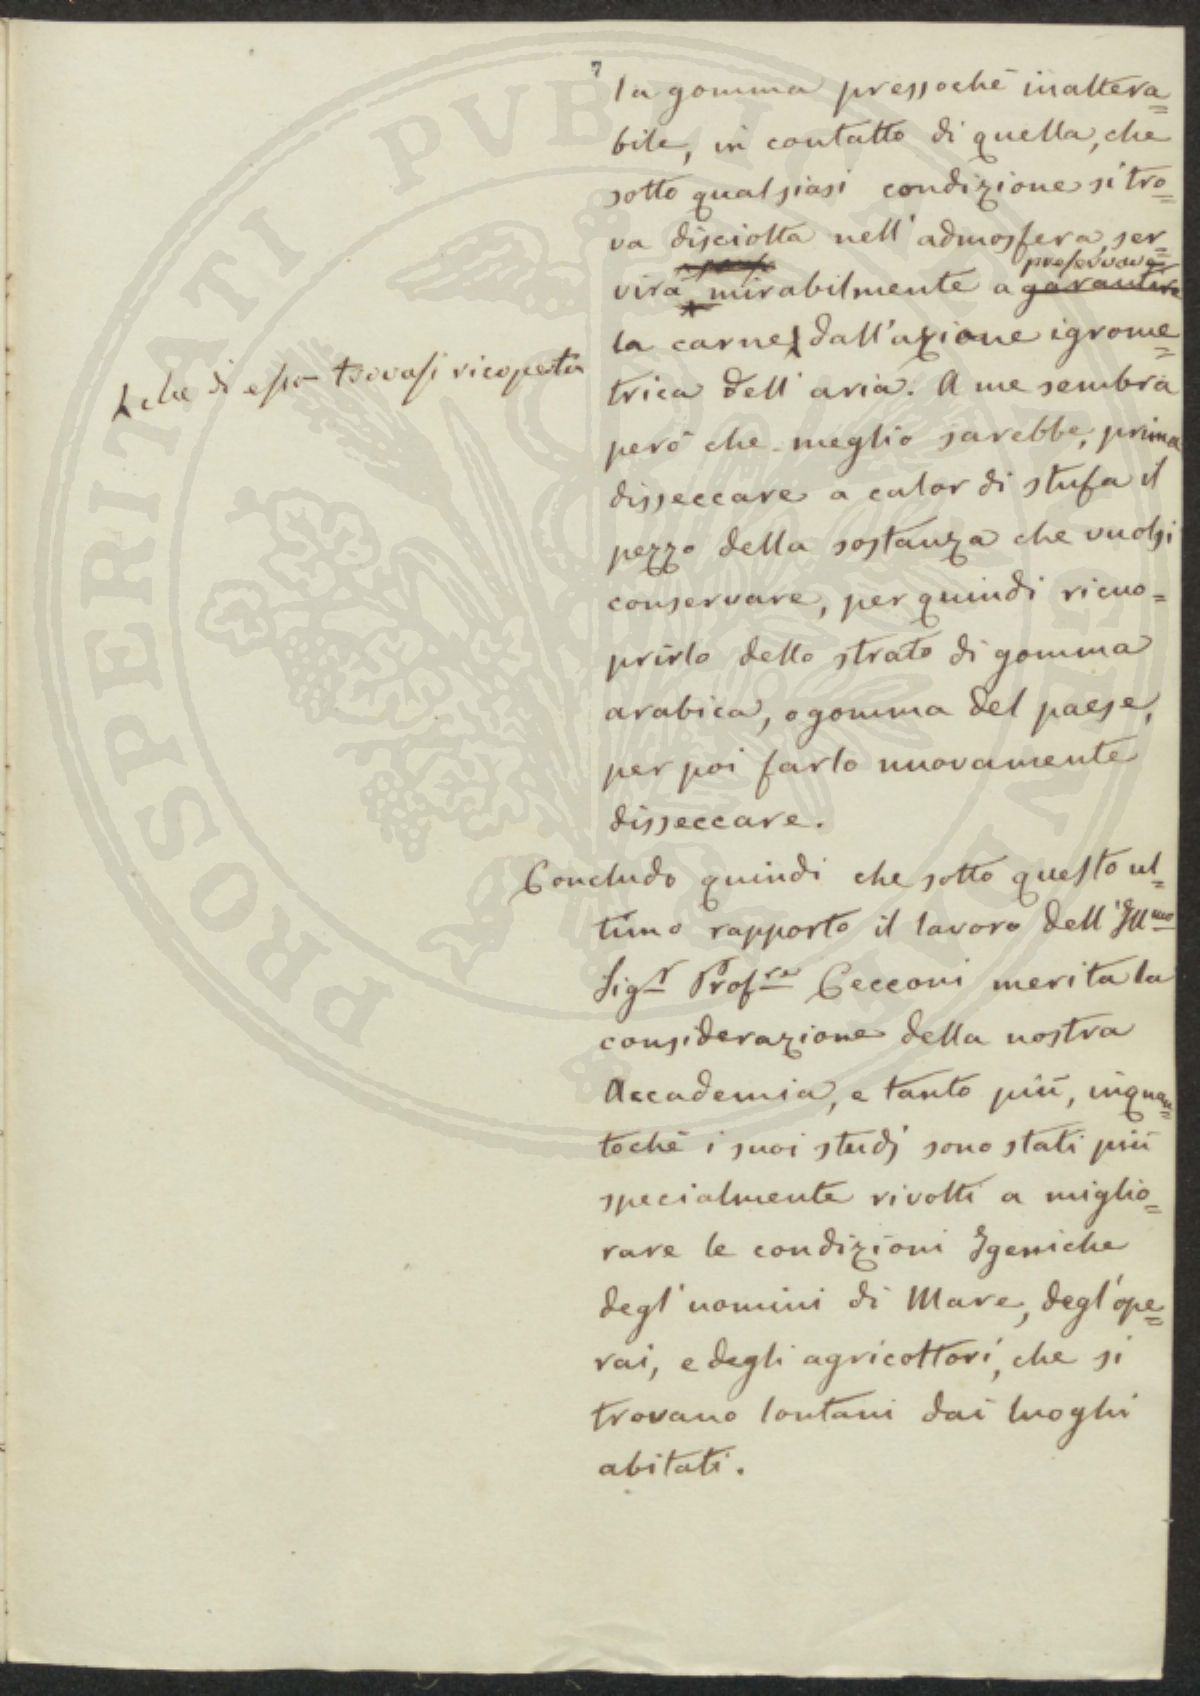 7
la gomma pressochè inaltera=
bile, in contatto di quella, che
sotto qualsiasi condizione si tro=
va disciolta nell'admosfera, ser=
virà mirabilmente a garantire
preservare
la carne dall'azione igrome=
che di essa trovasi ricoperta
trica dell'aria. A me sembra
però che meglio sarebbe, prima
disseccare a calor di stufa il
pezzo della sostanza che vuolsi
conservare, per quindi ricuo=
prirlo dello strato di gomma
arabica, o gomma del paese,
per poi farlo nuovamente
disseccare.
Concludo quindi che sotto questo ul=
timo rapporto il lavoro dell'Illmo
Sigr Profre Cecconi merita la
considerazione della nostra
Accademia, e tanto più, inquan=
tochè i suoi studj sono stati più
specialmente rivolti a miglio=
rare le condizioni Igeniche
degl'uomini di Mare, degl'ope=
rai, e degli agricoltori, che si
trovano lontani dai luoghi
abitati.
PROSPERITATI PVBLICAE